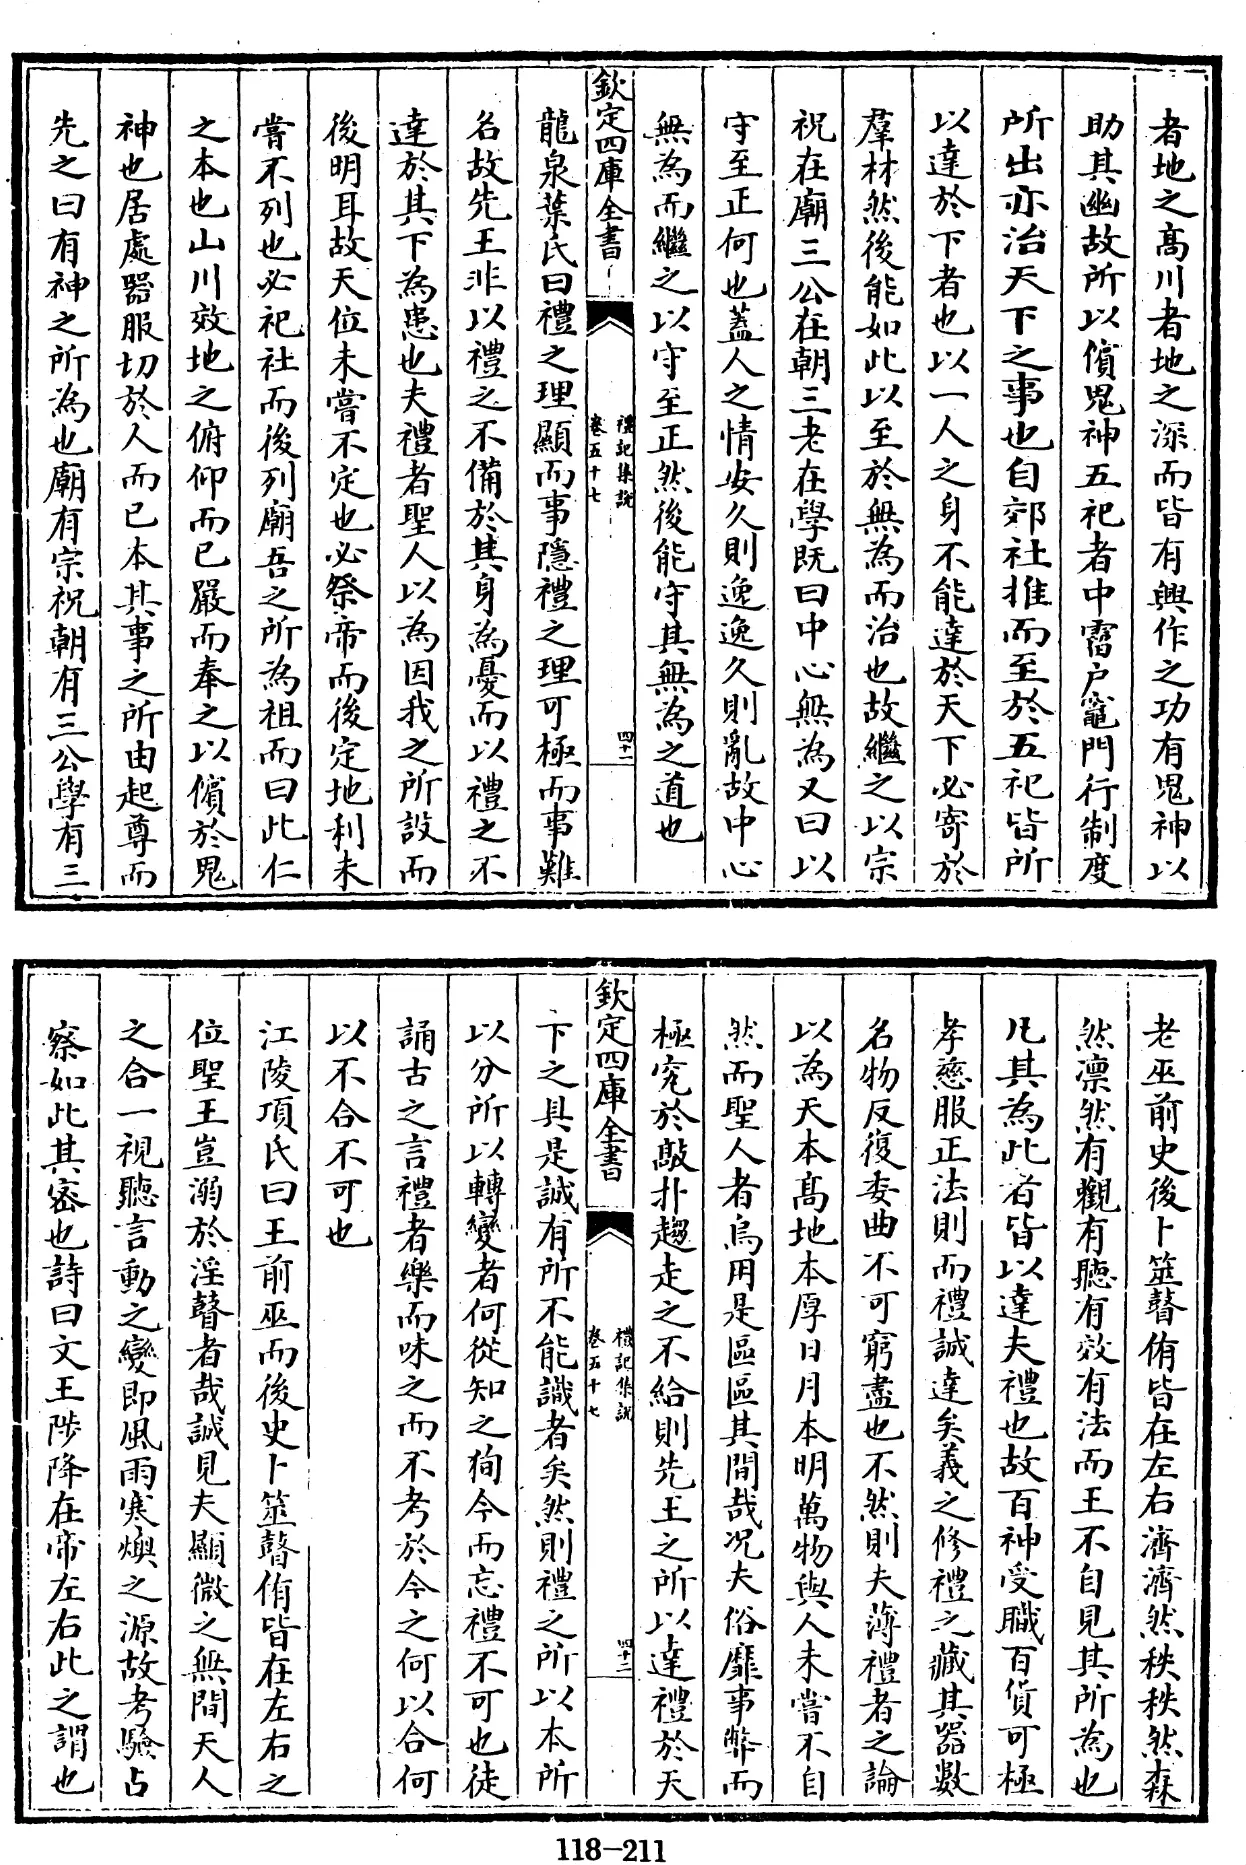 者地之髙川者地之深而皆有興作之功有鬼神以
助其幽故所以儐鬼神五祀者中霤户竈門行制度
所出亦治天下之事也自郊社推而至於五祀皆所
以達於下者也以一人之身不能達於天下必寄於
羣材然後能如此以至於無為而治也故繼之以宗
祝在廟三公在朝三老在學既曰中心無為又曰以
守至正何也蓋人之情安久則逸逸久則亂故中心
無為而繼之以守至正然後能守其無為之道也
欽定四庫全書
禮記集説
卷五十七
四十一
龍泉葉氏曰禮之理顯而事隱禮之理可極而事難
名故先王非以禮之不備於其身為憂而以禮之不
達於其下為患也夫禮者聖人以為因我之所設而
後明耳故天位未嘗不定也必祭帝而後定地利未
嘗不列也必祀社而後列廟吾之所為祖而曰此仁
之本也山川效地之俯仰而已嚴而奉之以儐於鬼
神也居處器服切於人而已本其事之所由起尊而
先之曰有神之所為也廟有宗祝朝有三公學有三
老巫前史後卜筮瞽侑皆在左右濟濟然秩秩然森
然凛然有觀有聽有效有法而王不自見其所為也
凡其為此者皆以達夫禮也故百神受職百貨可極
孝慈服正法則而禮誠達矣義之修禮之藏其器數
名物反復委曲不可窮盡也不然則夫薄禮者之論
以為天本髙地本厚日月本明萬物與人未嘗不自
然而聖人者烏用是區區其間哉况夫俗靡事弊而
極究於敲扑趨走之不給則先王之所以達禮於天
欽定四庫全書
禮記集説
卷五十七
四十二
下之具是誠有所不能識者矣然則禮之所以本所
以分所以轉變者何從知之狥今而忘禮不可也徒
誦古之言禮者樂而味之而不考於今之何以合何
以不合不可也
江陵項氏曰王前巫而後史卜筮瞽侑皆在左右之
位聖王豈溺於淫瞽者哉誠見夫顯微之無間天人
之合一視聽言動之變即風雨寒燠之源故考驗占
察如此其密也詩曰文王陟降在帝左右此之謂也
118-211